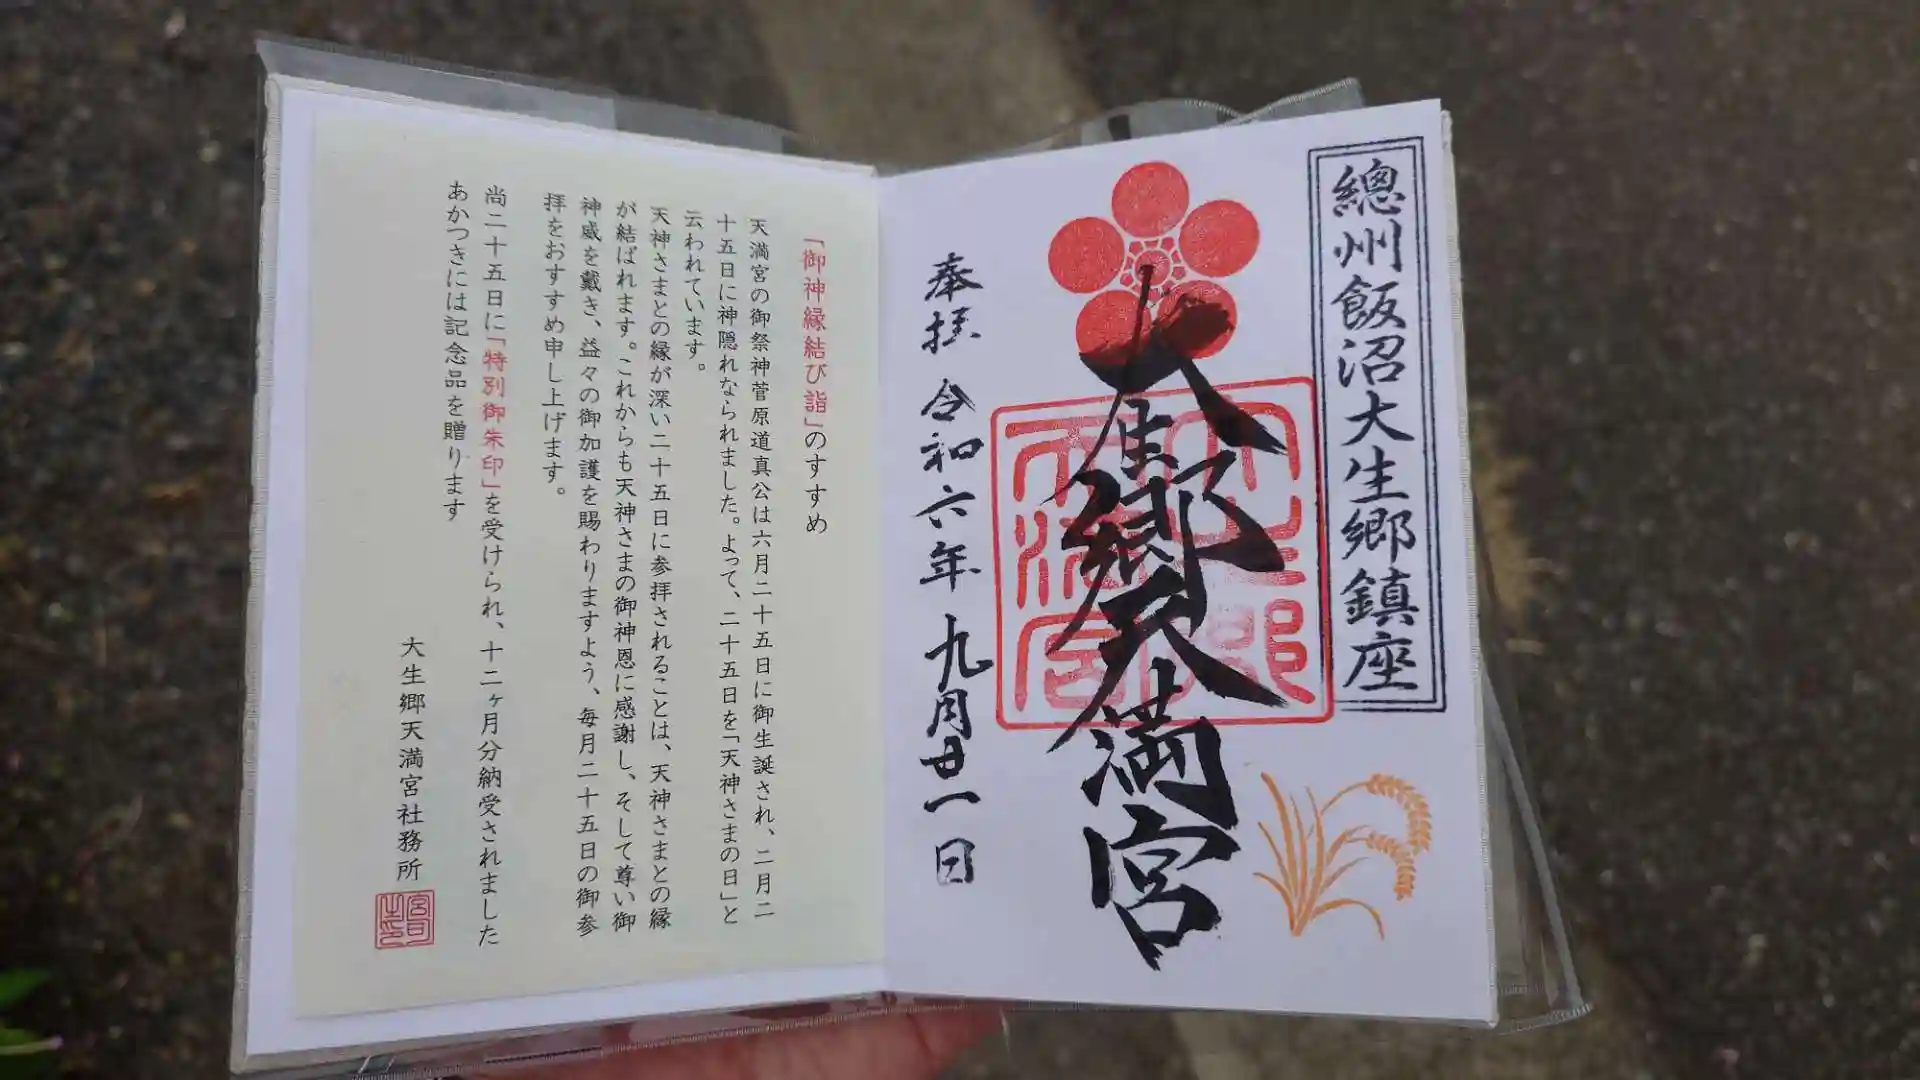 總州飯沼大生郷鎮座
大生郷天満宮
奉拝 令和六年九月廿一日
「御神縁結び詣」のすすめ
天満宮の御祭神菅原道真公は六月二十五日に御生誕され、二月二
十五日に神隠れなられました。よって、二十五日を「天神さまの日」と
云われています。
天神さまとの縁が深い二十五日に参拝されることは、天神さまとの縁
が結ばれます。これからも天神さまの御神恩に感謝し、そして尊い御
神威を戴き、益々の御加護を賜わりますよう、毎月二十五日の御参
拝をおすすめ申し上げます。
尚二十五日に「特別御朱印」を受けられ、十二ヶ月分納受されました
あかつきには記念品を贈ります
大生郷天満宮社務所